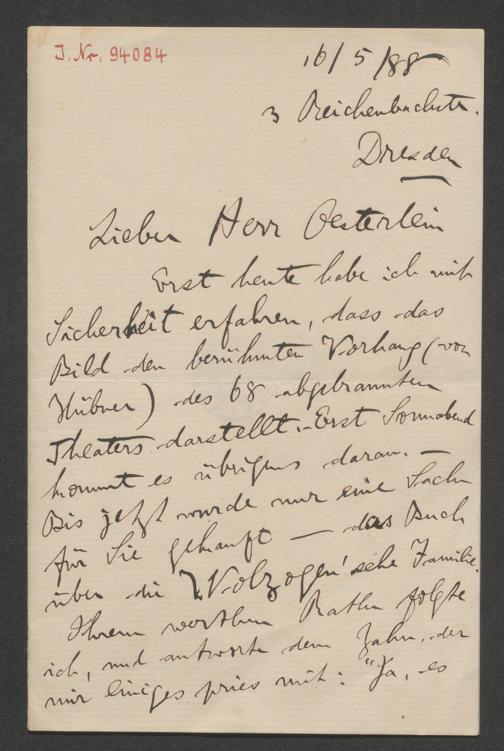 J. Nr. 94084
16/5/88
3 Reichenbachstr.
Dresden
Lieber Herr Oesterlein
Erst heute habe ich mit
Sicherheit erfahren, dass das
Bild den berühmten Vorhang (von
Hübner) des 68 abgebrannten
Theaters darstellt. – Erst Sonnabend
kommt es übrigens daran. –
Bis jetzt wurde nur eine Sache
für Sie gekauft – das Buch
über die Wolzogen'sche Familie.
Ihrem werthen Rathe folgte
ich, und antworte dem Jahn, der
mir einiges pries mit: "Ja, es